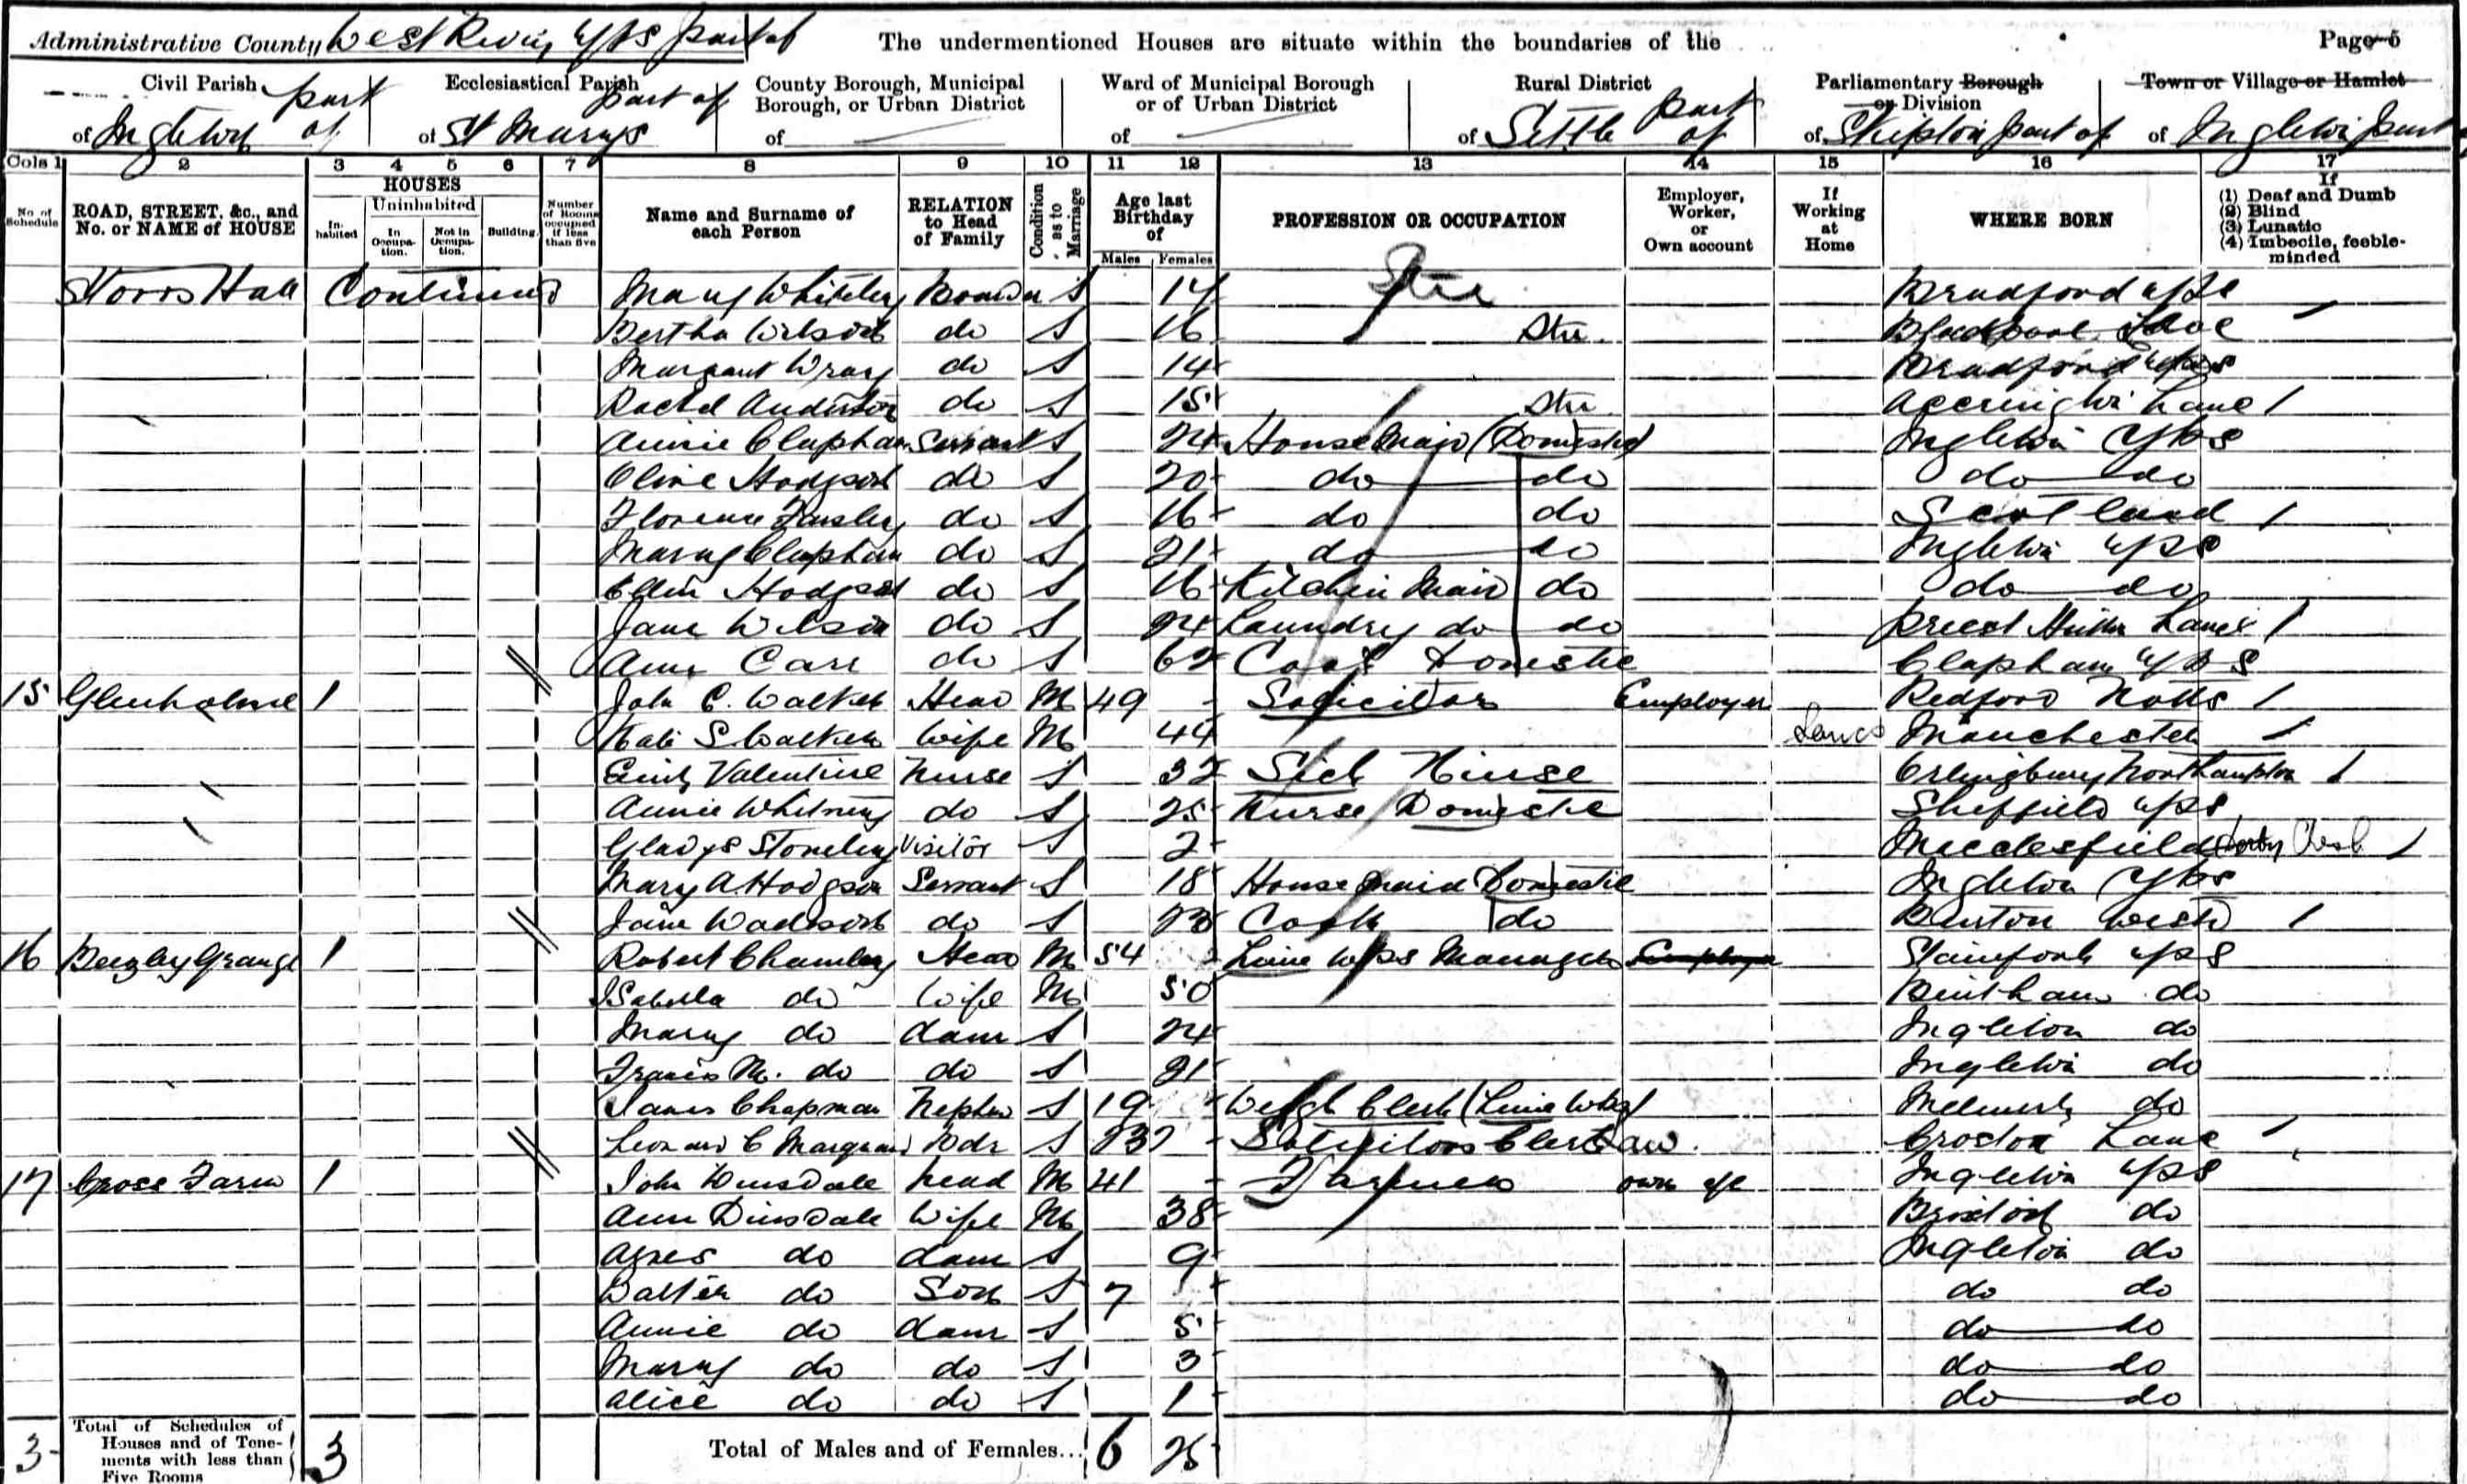 Administrative County West Riding Yks part of The undermentioned Houses are situate within the boundaries of the Page 5
Civil Parish Ecclesiastical Parish County Borough, Municipal Borough, or Urban District Ward of Municipal Borough or of Urban District Rural District Parliamentary Borough or Division Town or Village or Hamlet
of Ingleton part of of St Marys part of of of of Settle part of of Skipton part of of Ingleton part
Cols 1 2 3 4 5 6 7 8 9 10 11 12 13 14 15 16 17
No. of Schedule ROAD, STREET, &c., and No. or NAME of HOUSE HOUSES Inhabited Uninhabited In Occupation. Not in Occupation. Building. Number of Rooms occupied if less than five Name and Surname of each Person RELATION to Head of Family Condition as to Marriage Age last Birthday of Males Females PROFESSION OR OCCUPATION Employer, Worker, or Own account If Working at Home WHERE BORN If (1) Deaf and Dumb (2) Blind (3) Lunatic (4) Imbecile, feeble-minded
Storrs Hall Continued Mary Whiteley Boarder S 14 Bradford Yks
Bertha Wilson do S 16 Blackpool Lanc
Margaret Wray do S 14 Bradford Yks
Rachel Anderton do S 15 Accrington Lanc
Annie Clapham Servant S 24 House Maid (Domestic) Ingleton Yks
Olive Hodgson do S 20 do do do do
Florence do S 16 do do Scotland
Mary Clapham do S 21 do do Ingleton Yks
Ellen Hodgson do S 16 Kitchen Maid do do do
Jane Wilson do S 24 Laundry do do Priest Hutton Lancs
Ann Carr do S 62 Cook Domestic Clapham Yks
15 Glenholme 1 John C. Walker Head M 49 Solicitor Employer Redford Notts
Kate S Walker Wife M 44 Lancs Manchester
Emily Valentine Nurse S 32 Sick Nurse Orlingbury Northampton
Annie Whitney do S 25 Nurse Domestic Sheffield Yks
Gladys Stoneley Visitor S 2 Macclesfield Chesh
Mary A Hodgson Servant S 18 House maid Domestic Ingleton Yks
Jane Wadeson do S 23 Cook do Burton West
16 Beezley Grange 1 Robert Chamley Head M 54 Lime Wks Manager Employer Stainforth Yks
Isabella do Wife M 50 Bentham do
Mary do daur S 24 Ingleton do
Francis M. do do S 21 Ingleton do
James Chapman Nephew S 19 Weigh Clerk (Lime Wks) Melmerby do
Leonard C Bdr S 23 Solicitors Clerk Law Croston Lanc
17 Cross Farm 1 John Dinsdale head M 41 Farmer own a/c Ingleton Yks
Ann Dinsdale Wife M 38 do
Agnes do daur S 9 Ingleton do
Walter do Son S 7 do do
Annie do daur S 5 do do
Mary do do S 3 do do
Alice do do S 1 do do
3 Total of Schedules of Houses and of Tenements with less than Five Rooms 3 Total of Males and of Females... 6 25